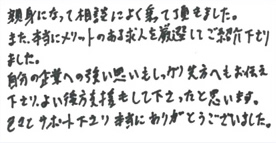 親身になって相談によく乗って頂きました。
また、本当にメリットのある求人を厳選してご紹介下さり
ました。
自分の企業への強い思いもしっかり先方へもお伝え
下さり、よい後方支援もして下さったと思います。
色々とサポート下さり本当にありがとうございました。